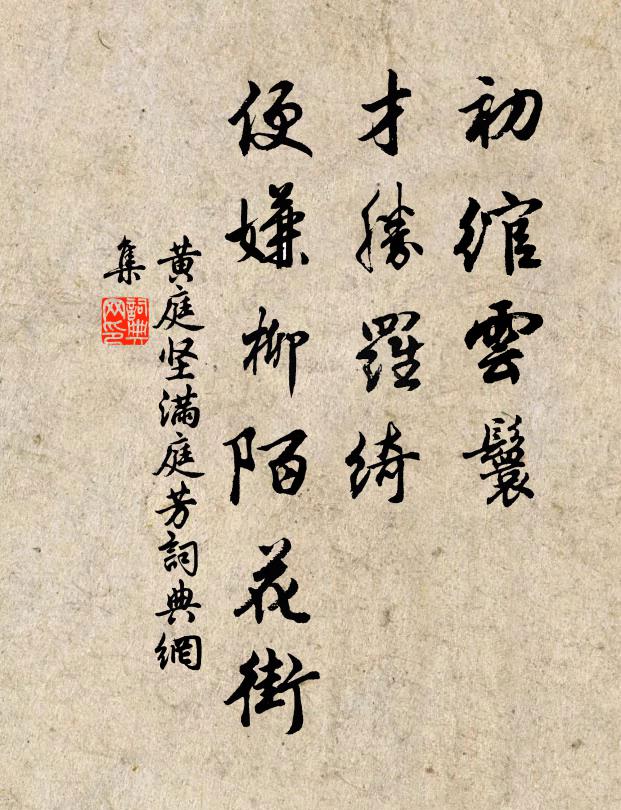 初綰雲鬟
才勝羅綺
便嫌柳陌花街
黄庭坚滿庭芳詞典網
集
詞典网印